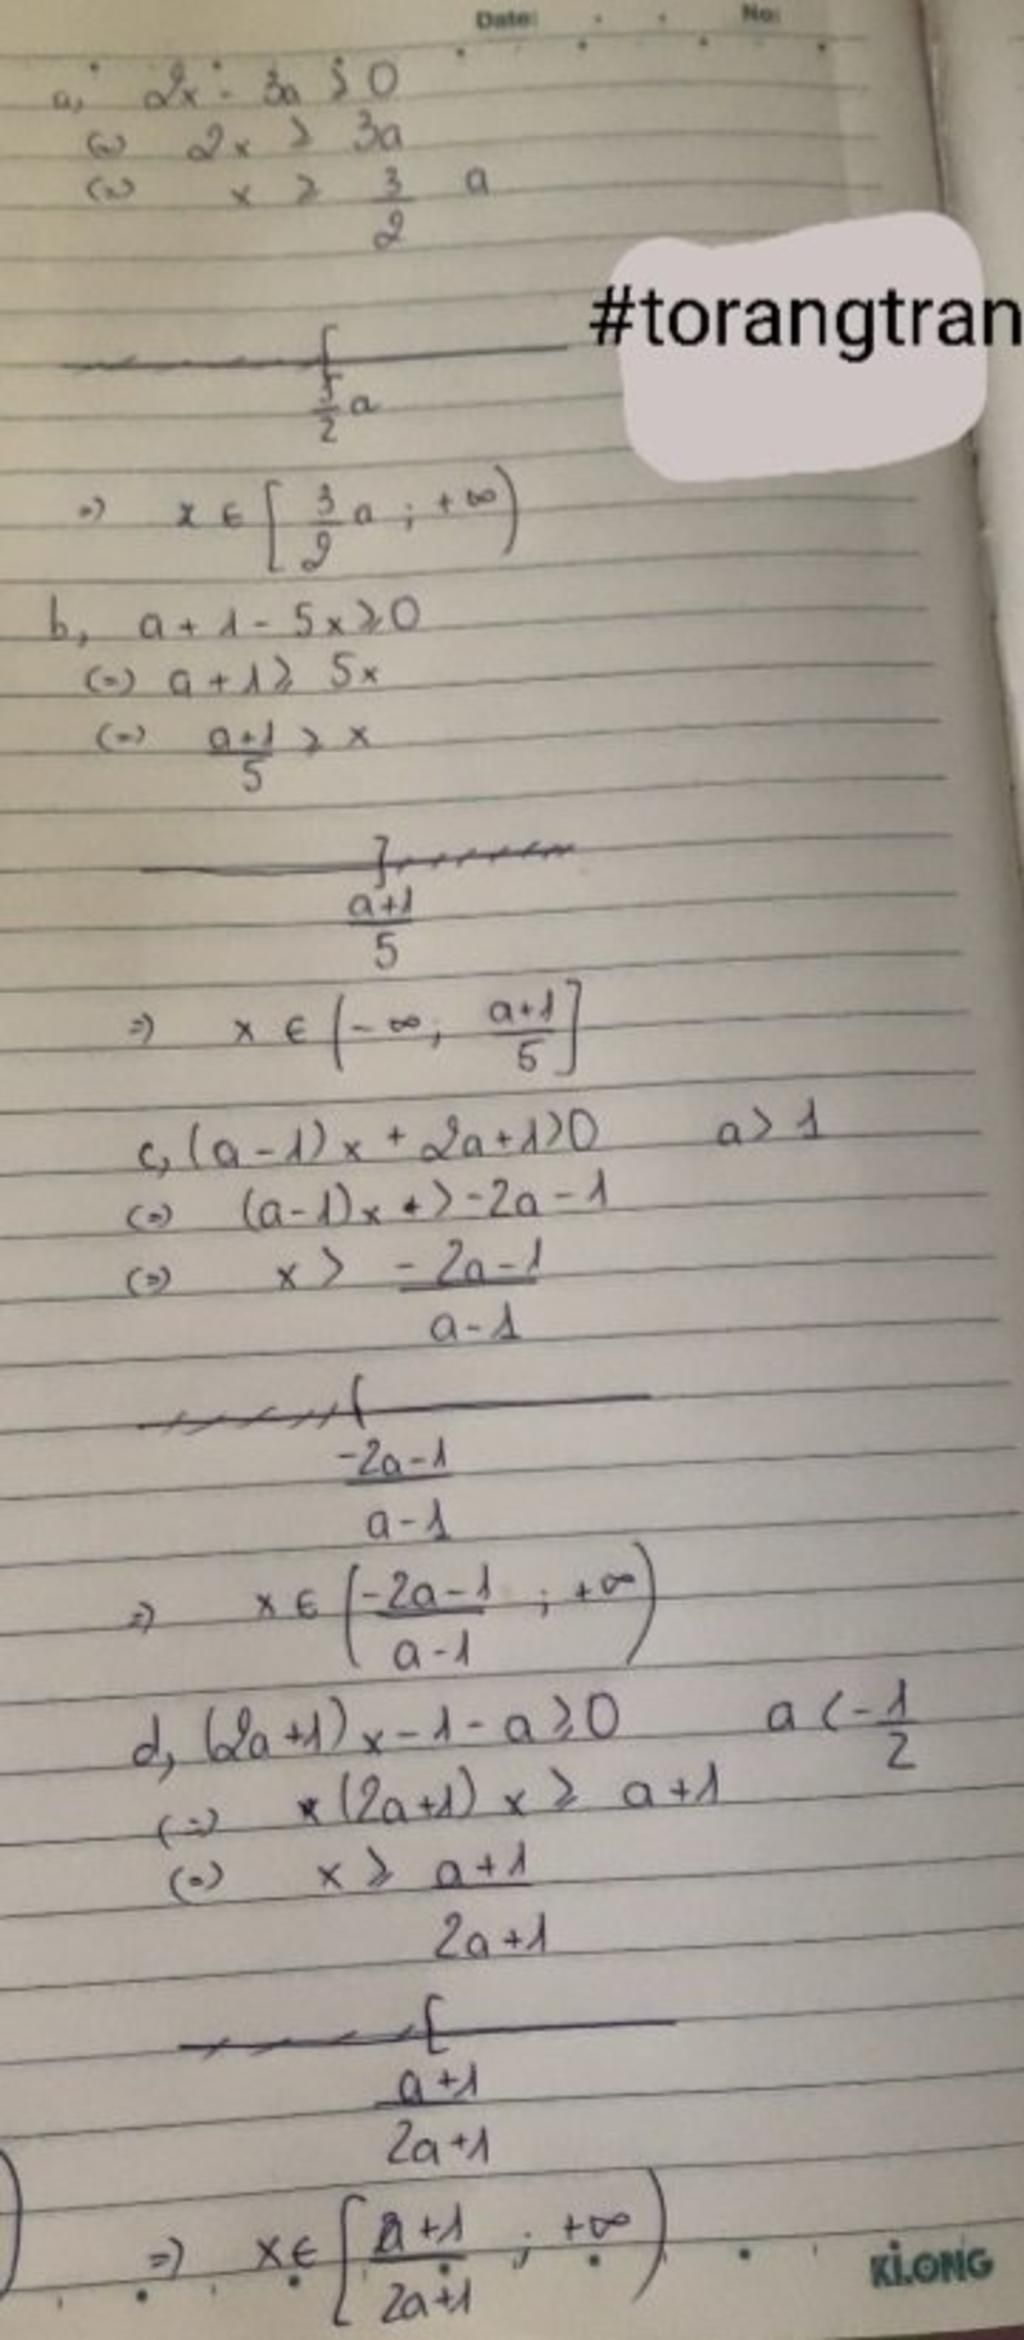 Date: No:
a, 2x - 3a ≥ 0
(=) 2x ≥ 3a
(=) x ≥ 3/2 a
#torangtran
3/2 a
=) x ∈ [3/2 a ; +∞)
b, a + 1 - 5x ≥ 0
(=) a + 1 ≥ 5x
(=) a+1/5 ≥ x
a+1/5
=) x ∈ (-∞; a+1/5]
c, (a-1)x + 2a+1>0 a > 1
(=) (a-1)x + > -2a - 1
(=) x > -2a-1/a-1
-2a-1/a-1
=) x ∈ (-2a-1/a-1 ; +∞)
d, (2a+1)x - 1 - a ≥ 0 a < -1/2
(=) x (2a+1) x ≥ a+1
(=) x ≥ a+1/2a+1
a+1/2a+1
=) x ∈ [a+1/2a+1 ; +∞)
KiLONG